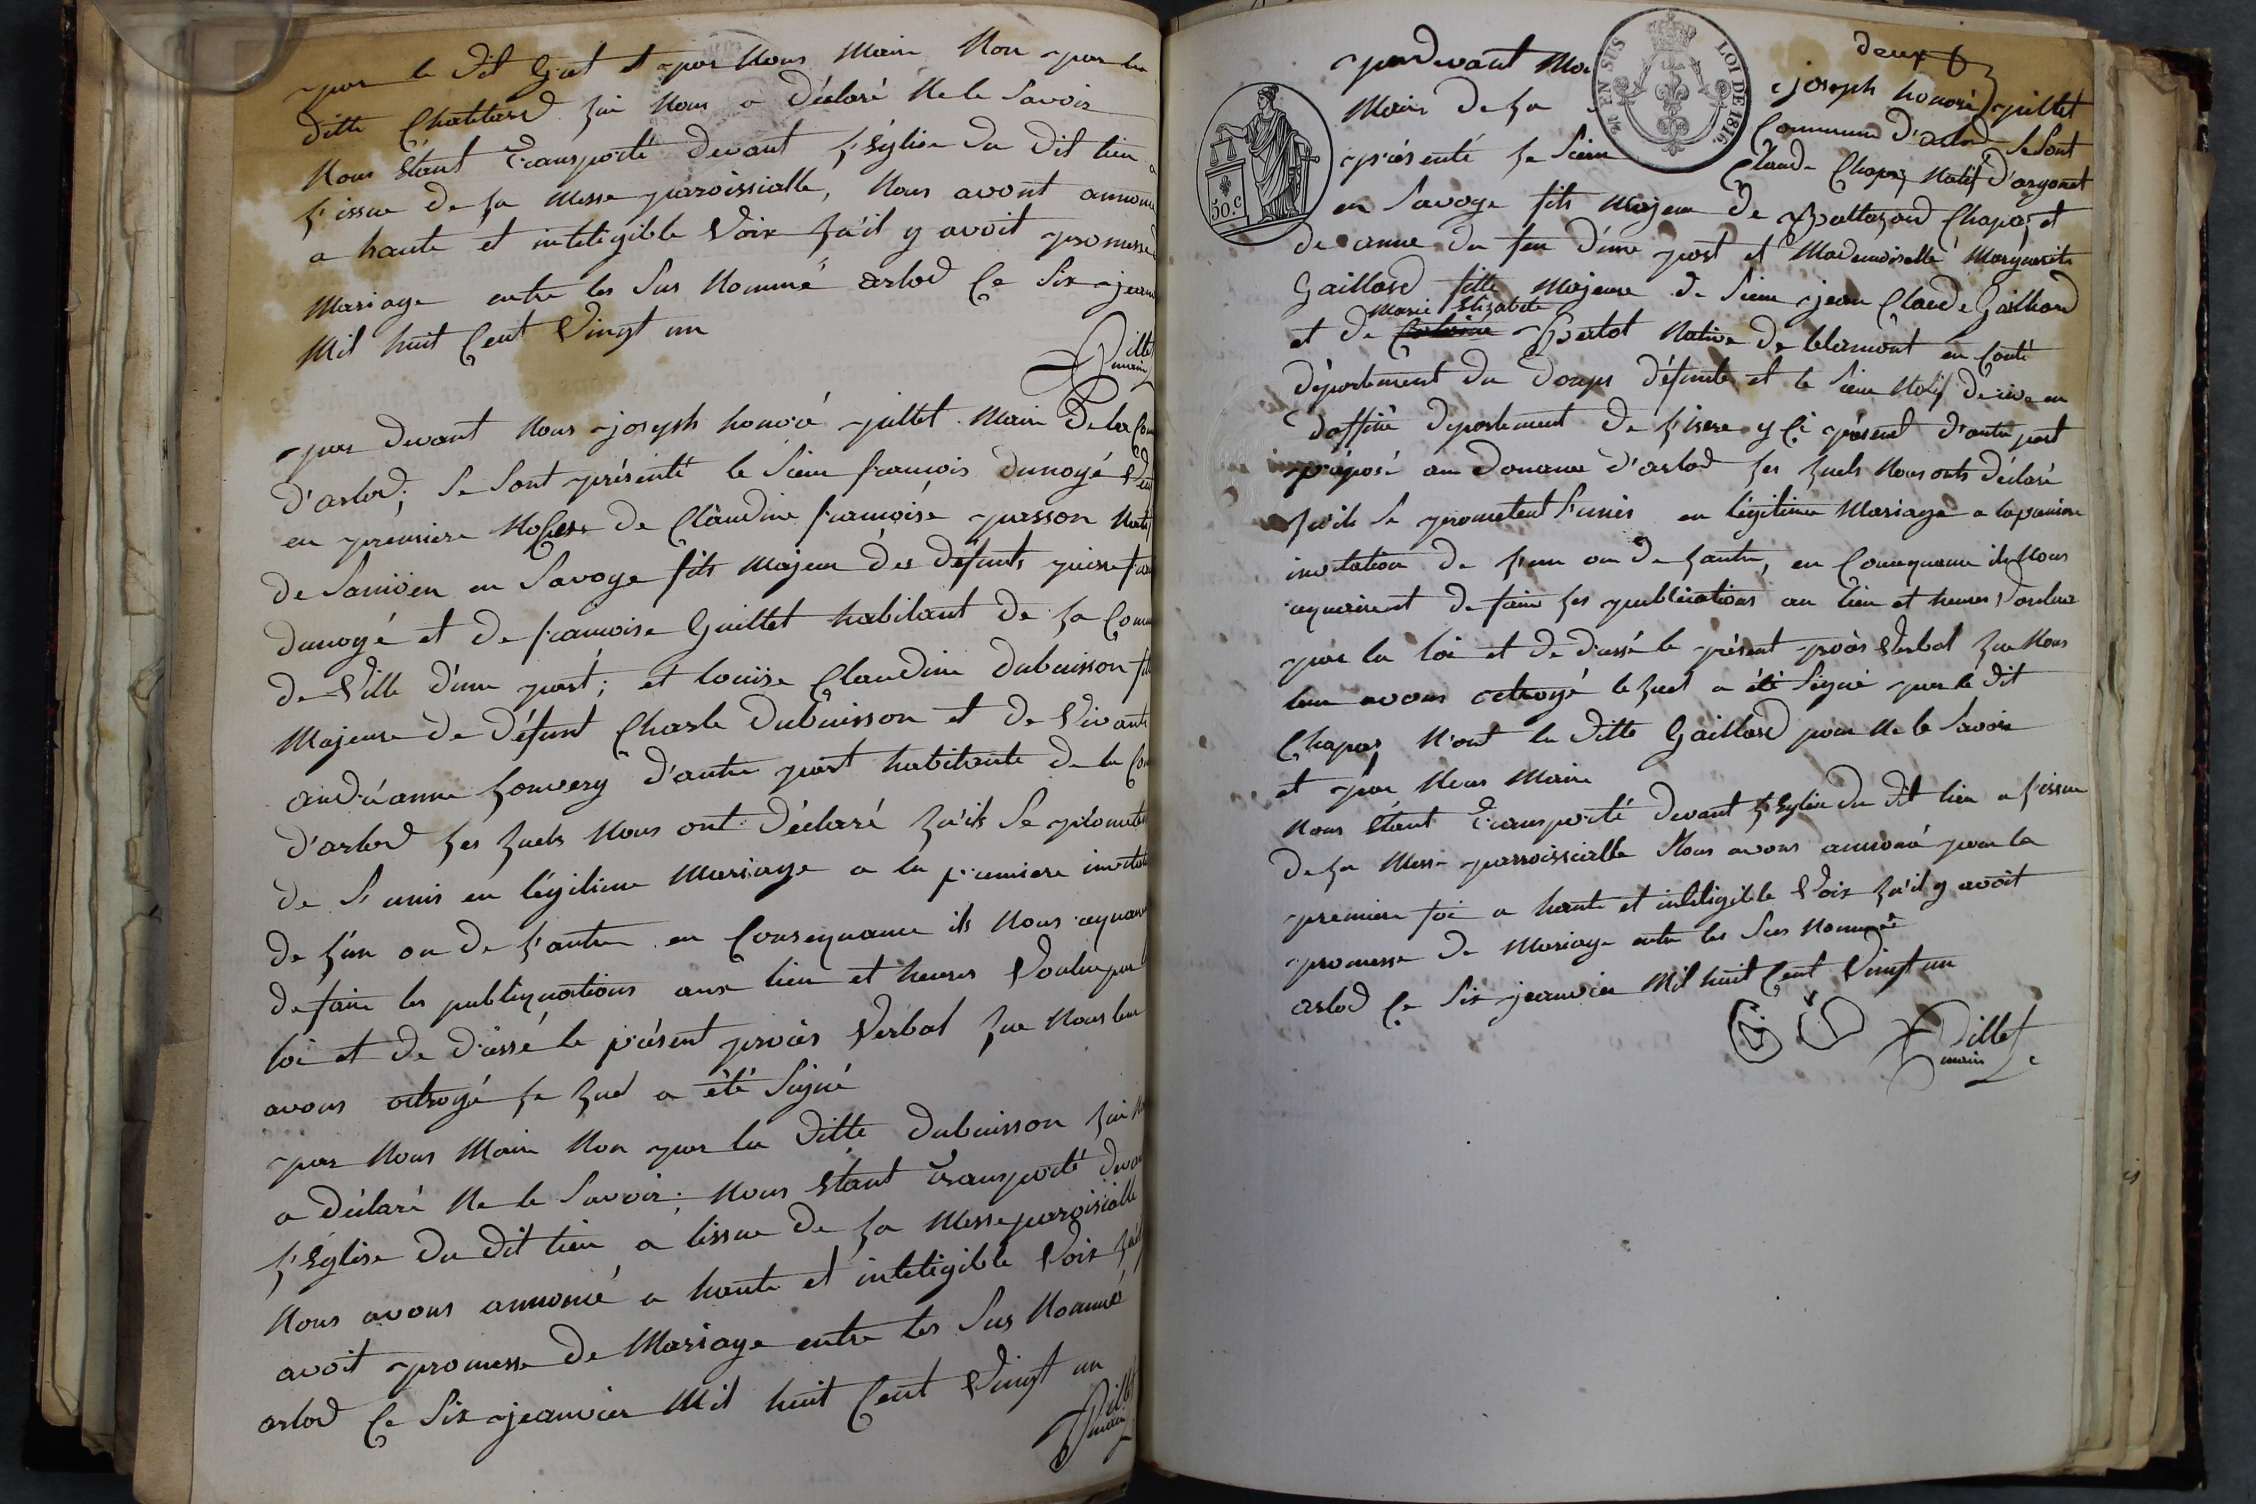 par le dit Gat et par Nous Maire Non par la
ditte Chattard qui Nous a déclaré Ne le Savoir
Nous étant transporté devant l'Eglise du dit lieu a
l'issue de la Messe paroissialle, Nous avont annoncé
a haute et inteligible Voix qu'il y avoit promesse
Mariage entre les Sus Nommé arlod Ce Six jeanv
Mil huit Cent Vingt un
Pillet
maire
par devant Nous joseph honoré pillet Maire De la Com
d'arlod; Se Sont présenté le Sieur françois dunoyé Veuf
en premiere Noces de Claudine françoise passon Natif
de Samoën en Savoye fils Majeur des défunts
dunoyé et de françoise Guillet habitant de la Com
de Ville d'une part; et louise Claudine dubuisson fille
Majeure de défunt Charle Dubuisson et de Vivante
andréanne d'autre part habitante de la Com
d'arlod les quels Nous ont déclaré qu'ils Se promettent
de S'unir en légitime Mariage a la premiere invitation
de l'un ou de l'autre en Consequance ils Nous
de faire les publiquations aux lieu et heures Voulue par
loi et de d'assé le présent procès Verbal que Nous leur
avons octroyé le quel a été Signé
par Nous Maire Non par la ditte dubuisson qui
a déclaré Ne le Savoir; Nous étant transporté devant
l'Eglise du dit lieu a lissue de la Messe paroisialle
Nous avons annoncé a haute et inteligible Voix qu'il
avoit promesse de Mariage entre les Sus Nommé
arlod Ce Six jeanvier Mil huit Cent Vingt un
Pillet
maire
deux
EN SUS
LOI DE 1816
50.C
pardevant Nou joseph honoré pillet
Maire de la Commune d'arlod Se Sont
présenté le Sieur Claude Chapaz Natif d'argonet
en Savoye fils Majeur de Baltazard Chapaz et
de anne du feu d'une part et Mademoiselle Marguerite
Gaillard fille Majeure de Sieur jean Claude Gaillard
Marie Elizabete
et de Bertot Native de blamont en Conté
département du Doups défunte et le Sieur Natif de rive en
daffiné département de l'isere y Ci présent d'autre part
préposé au Douane d'arlod les quels Nous onts déclaré
qu'ils Se prometent S'unir en légitime Mariage a la premiere
invitation de l'un ou de l'autre, en Consequance ils Nous
de faire les publications au lieu et heures Voulue
par la loi et de d'assé le présent procès Verbal que Nous
leur avons octroyé le quel a été Signé par le dit
Chapaz N'ont la ditte Gaillard pour Ne le Savoir
et par Nous Maire
Nous étant transporté devant l'Eglise du dit lieu a l'issue
de la Messe parroissialle Nous avons annoncé pour la
premiere foi a haute et inteligible Voix qu'il y avoit
promesse de Mariage entre les Sus Nommée
arlod Ce Six jeanvier Mil huit Cent Vingt un
Pillet
maire